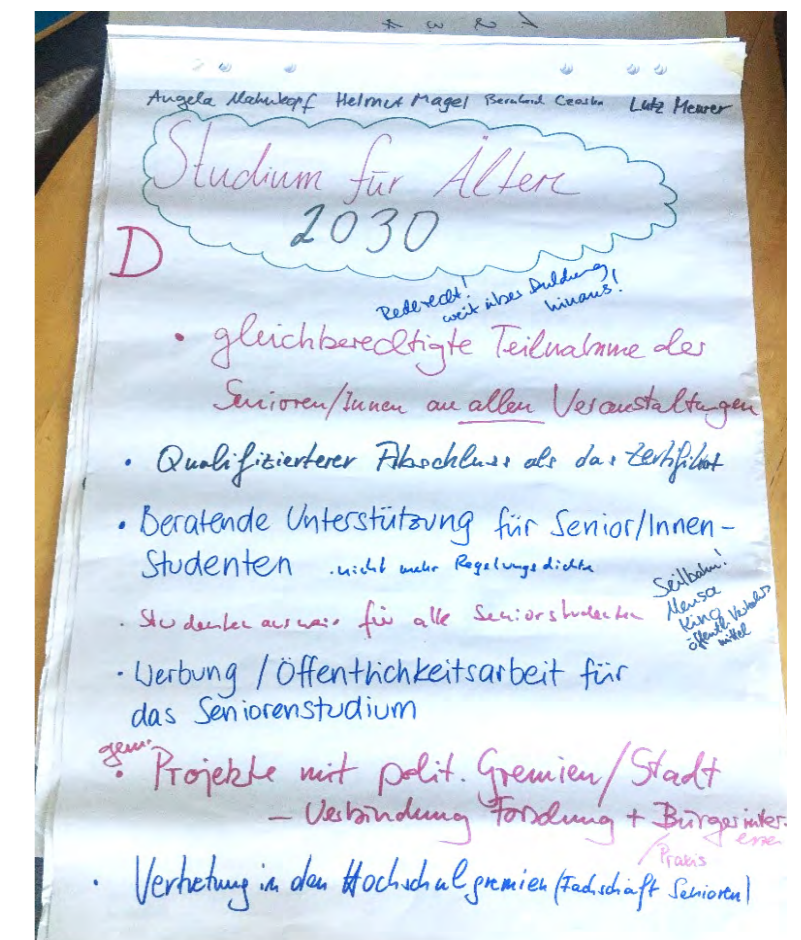 Angela Mahnkopf Helmut Magel Bernhard Lutz Meurer
Studium für Ältere
2030
D
Rederecht!
weit über Duldung
hinaus!
• gleichberechtigte Teilnahme der
Senioren/Innen an allen Veranstaltungen
• Qualifizierterer Abschluss als das Zertifikat
• Beratende Unterstützung für Senior/Innen-
Studenten . nicht mehr Regelungsdichte
• Studentenausweis für alle Seniorstudenten
Seilbahn!
Mensa
Kino
öffentl. Verkehrs
mittel
• Werbung / Öffentlichkeitsarbeit für
das Seniorenstudium
gem.
• Projekte mit polit. Gremien/Stadt
– Verbindung Forschung + Bürgerinter-
essen
/Praxis
• Vertretung in den Hochschulgremien (Fachschaft Senioren)